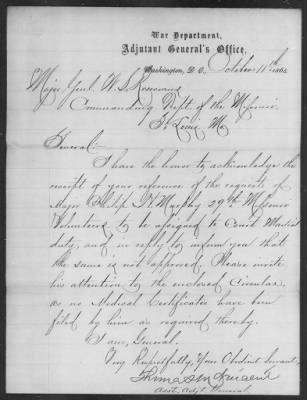 War Department,
Adjutant General's Office,
Washington, D.C. October 11th 1864
Major Genl. W. S. Rosecrans
Commanding Dept. of the Missouri
St Louis Mo
General:-
I have the honor to acknowledge the
receipt of your reference of the requests of
Major Philip H. Murphy 29th Missouri
Volunteers to be assigned to Court Martial
duty, and in reply to inform you that
the same is not approved. Please invite
his attention to the enclosed Circular,
as no Medical Certificates have been
filed by him as required thereby.
I am, General,
Very Respectfully, Your Obedient Servant,
Thomas M
Asst. Adjt. General.